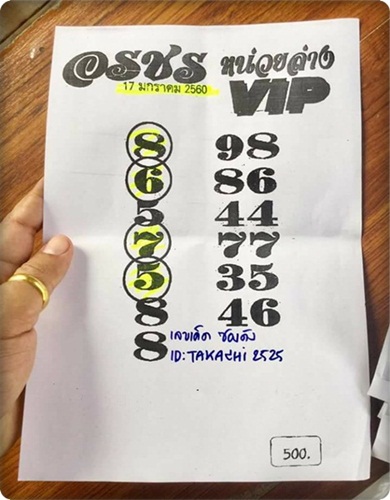 อรชร หน่วยล่าง
17 มกราคม 2560 VIP
8 98
6 86
5 44
7 77
5 35
8 46
8
เลขเด็ด ซองดัง
ID:TAKAcHi 2525
500.